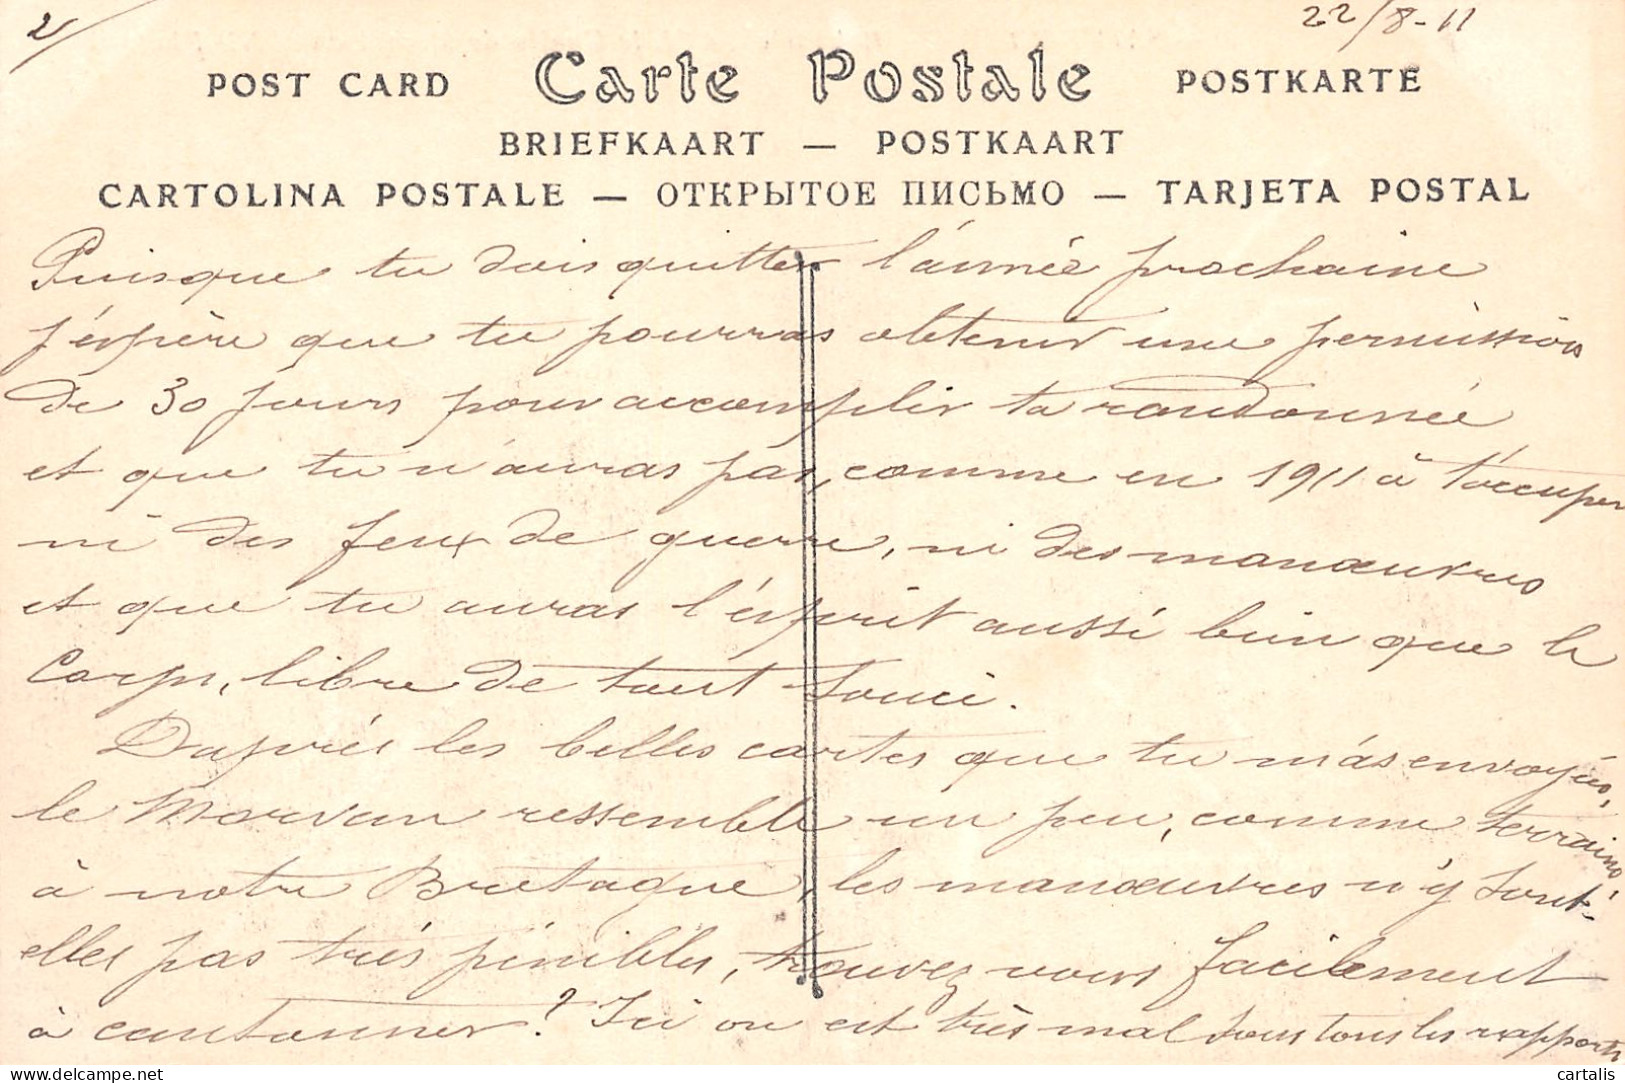 2/
22/8-11
POST CARD Carte Postale POSTKARTE
BRIEFKAART — POSTKAART
CARTOLINA POSTALE — ОТКРЫТОЕ ПИСЬМО — TARJETA POSTAL
Puisque tu dois quitter l'année prochaine
j'espère que tu pourras obtenir une permission
de 30 jours pour accomplir ta randonnée
et que tu n'auras pas, comme en 1911 à t'occuper
ni des jeux de guerre, ni des manœuvres
et que tu auras l'esprit aussi bien que le
corps, libre de tout souci.
D'après les belles cartes que tu m'as envoyées,
le Morvan ressemble un peu, comme terrains,
à notre Bretagne, les manœuvres n'y sont-
elles pas très pénibles, trouvez vous facilement
à cantonner? Ici on est très mal sous tous les rapports
delcampe.net
cartalis